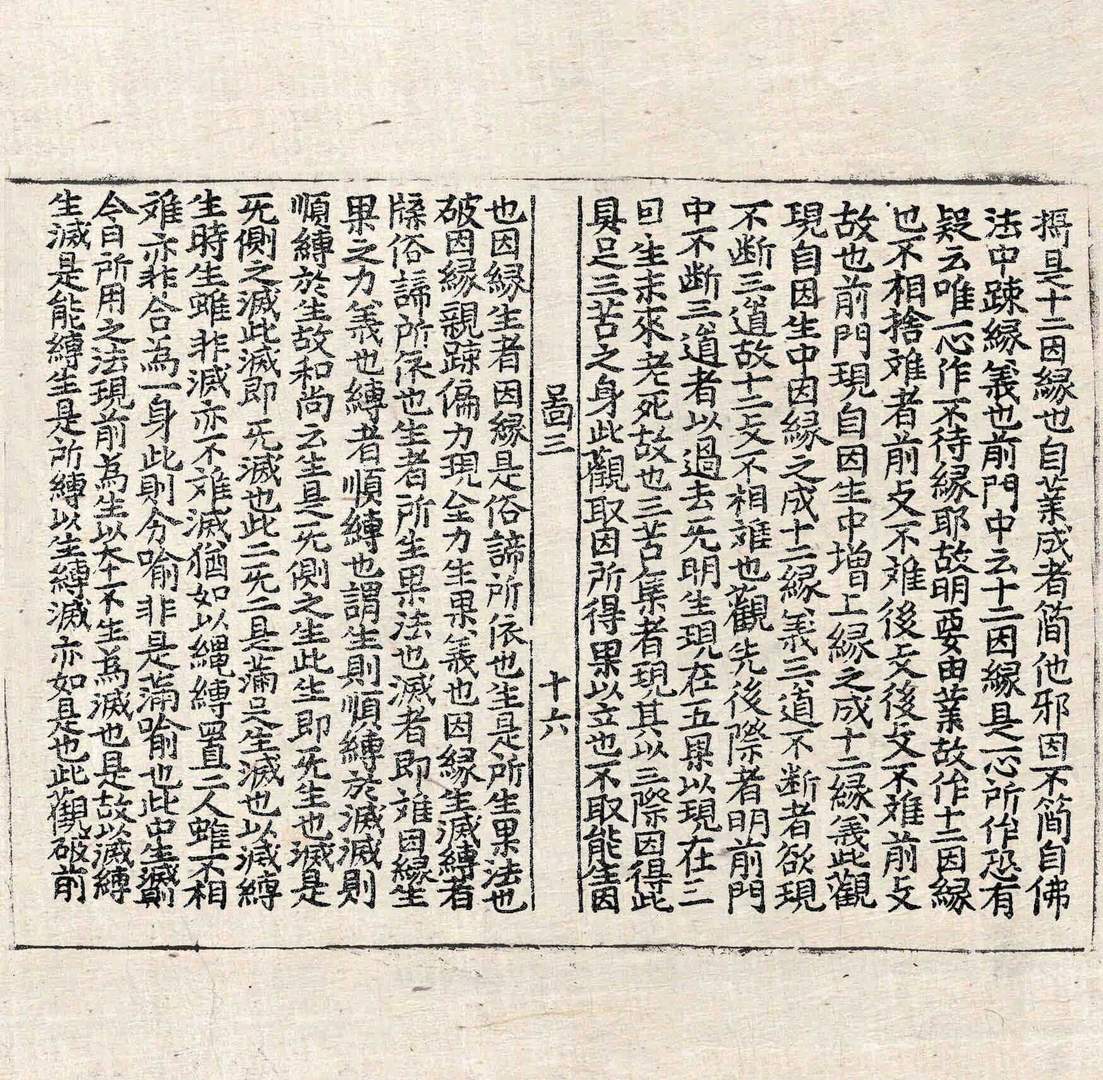 攝是十二因縁也自業成者簡他邪因不簡自佛
法中踈縁義也前門中云十二因縁是一心所作恐有
疑云唯一心作不待縁耶故明要由業故作十二因縁
也不相捨难者前攴不难後攴後攴不难前攴
故也前門現自因生中增上縁之成十二縁義此觀
現自因生中因縁之成十二縁義三道不断者欲現
不断三道故十二攴不相难也觀先後際者明前門
中不断三道者以過去无明生現在五果以現在二
曰生未來老死故也三苦集者現其以三際因得此
具足三苦之身此觀取因所得果以立也不取能生因
啚三 十六
也因縁生者因縁是俗諦所依也生是所生果法也
破因縁親踈偏力現全力生果義也因縁生滅縛者
牒俗諦所依也生者所生果法也滅者即难因縁生
果之力義也縛者順縛也謂生則順縛於滅滅則
順縛於生故和尚云生是无側之生此生即无生也滅是
无側之滅此滅即无滅也此二无二是滿足生滅也以滅縛
生時生雖非滅亦不难滅猶如以縄縛置二人雖不相
难亦非合為一身此則分喻非是滿喻也此中生滅則
今日所用之法現前為生以本不生為滅也是故以滅縛
生滅是能縛生是所縛以生縛滅亦如是也此觀破前